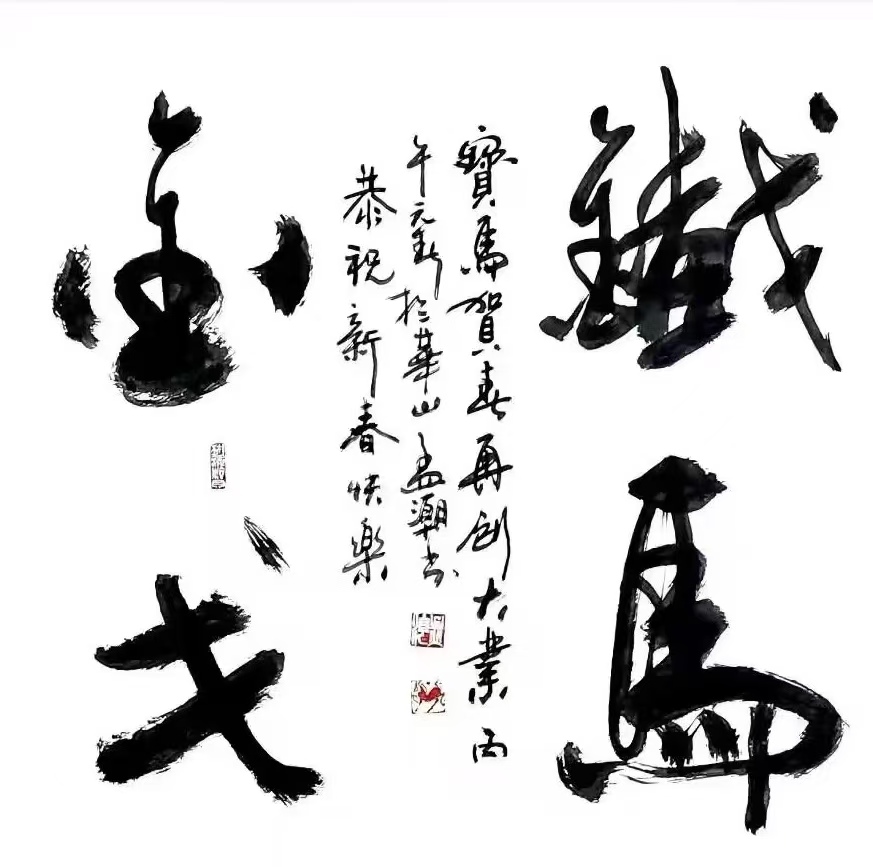 鐵馬
金戈
寶馬賀春再創大業丙
午元新於華山孟潮书
恭祝新春快樂